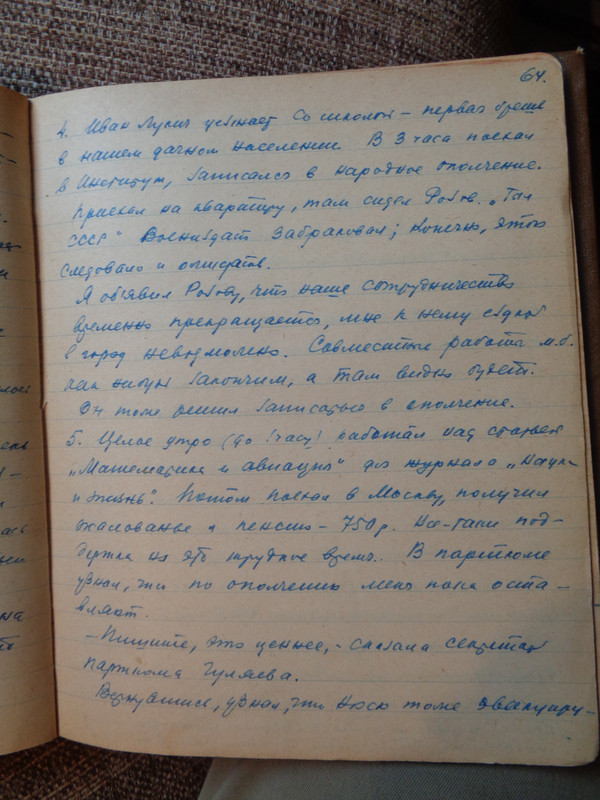 64.
4. Иван Лукич уезжает со школой – первая брешь
в нашем дачном населении. В 3 часа поехал
в Институт, записался в народное ополчение.
Приехал на квартиру, там сидел Розов. „Там
СССР" Воениздат забраковал; конечно, этого
следовало и ожидать.
Я объявил Розову, что наше сотрудничество
временно прекращается, мне к нему ездить
в город невозможно. Совместные работы м.б.
как-нибудь закончим, а там видно будет.
Он тоже решил записаться в ополчение.
5. Целое утро (до 1 часу) работал над статьей
„Математика и авиация" для журнала „Наука
и жизнь". Потом поехал в Москву, получил
жалованье и пенсию – 750 р. Все-таки под-
держка на это трудное время. В парткоме
узнал, что по ополчению меня пока оста-
вляют.
– Пишите, это ценнее, – сказала секретарь
парткома Гуляева.
Вернувшись, узнал, что Нюсю тоже эвакуиру-